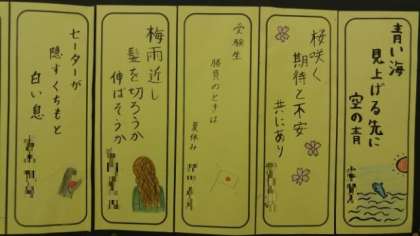 青い海
見上げる先に
空の青
桜咲く
期待と不安
共にあり
受験生
勝負のときは
夏休み
梅雨近し
髪を切ろうか
伸ばそうか
セーターが
隠すくちもと
白い息